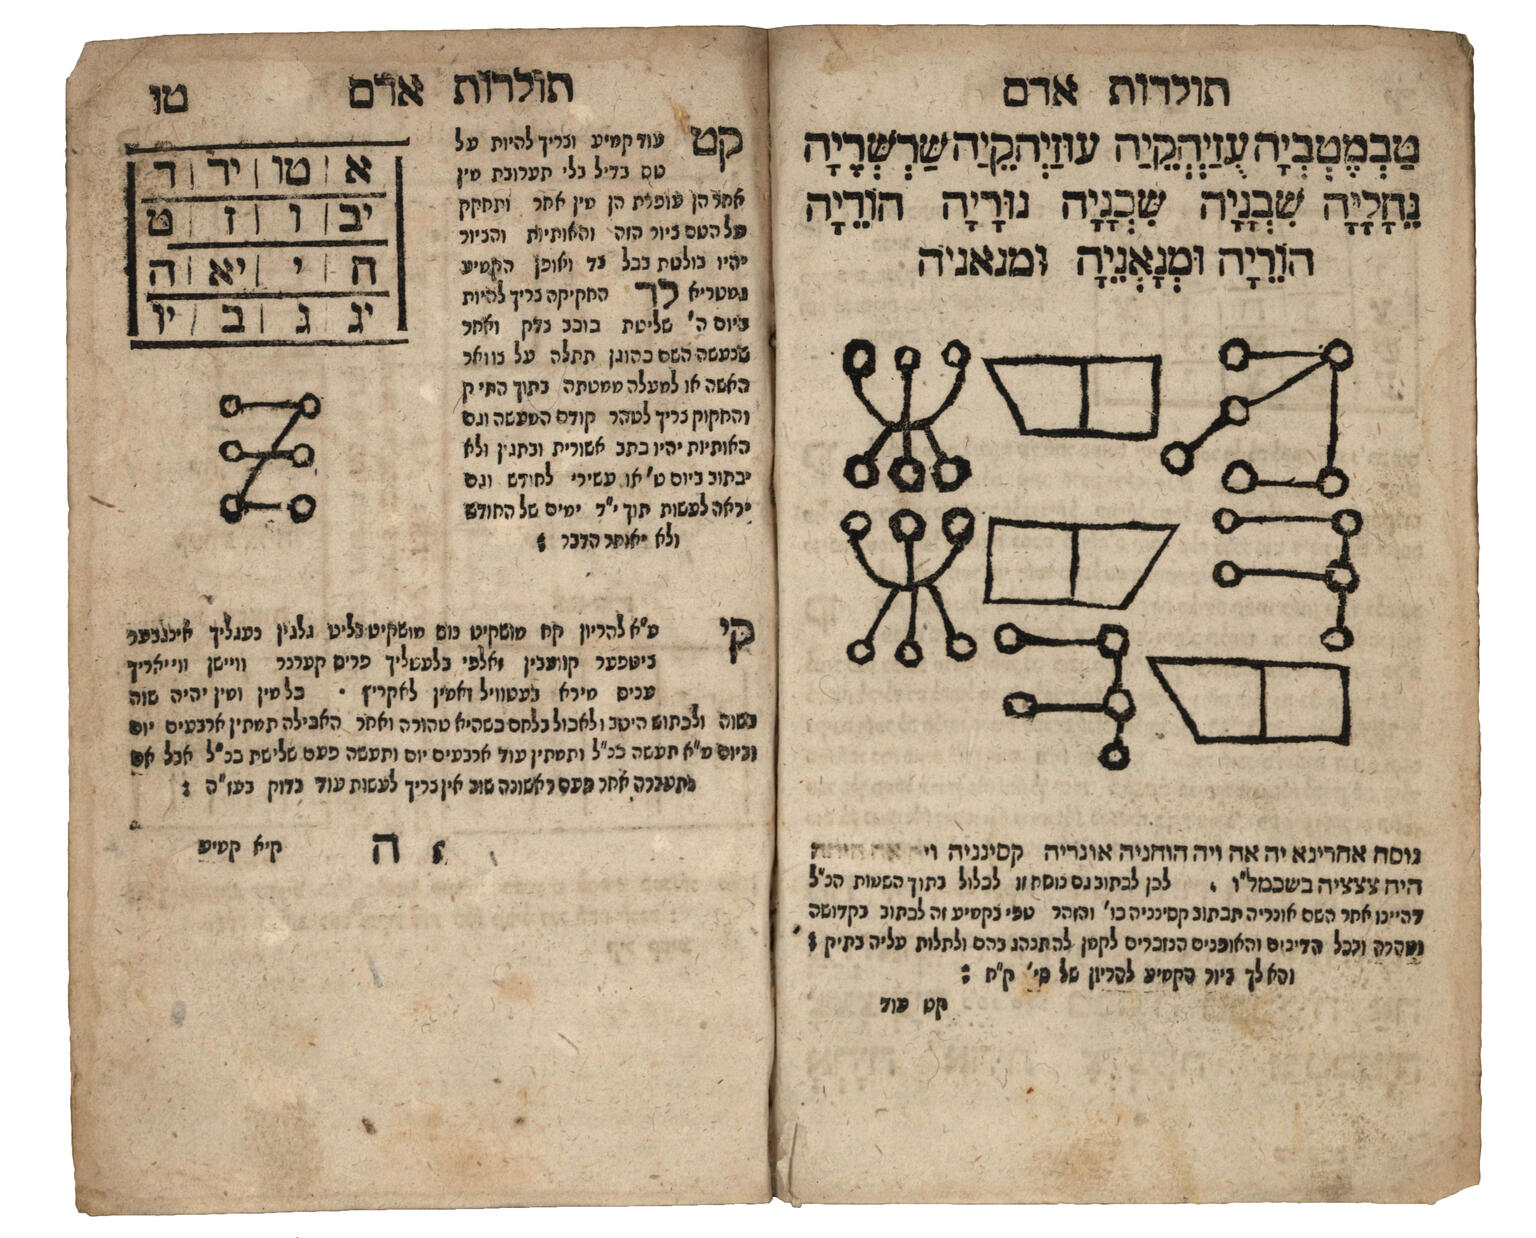 תולדות אדם
טַבְמֶטְבְיָה עֻזַיְהְקֵיַה עוּזַיְהֵקֵיָה שַׁרְשְׁרֵיָה
נֵחָלָיָה שִׁבְנָיָה שִׁכְנָיָה נוּרָיָה הוֹרֵיָה
הוֹרֵיָה וּמְנָאֲנֵיָה ומנאניה
נוסח אחרינא יה אה ויה הוחניה אונריה קסינניה
היה צצציה בשכמל"ו . לכן לכתוב גם נוסח זו לכלול בתוך השמות הנ"ל
דהיינו אחר השם אונריה תכתוב קסינניה כו' והזהר טפי בקמיע זה לכתוב בקדושה
וטהרה ובכל הדינים והאופנים הנזכרים לקמן להתנהג בהם ולתלות עליה בתיק :
והא לך ציור הקמיע להריון של סי' ק"ח :
קט עוד
תולדות אדם טו
קט עוד קמיע וצריך להיות על
טס בדיל בלי תערובת מין
אחר הן עופרת הן מין אחר ותחקק
על הטס ציור הזה והאותיות והציור
יהיו בולטת בכל צד ואופן הקמיע
גמטריא לד החקיקה צריך להיות
ביום ה' שליטת כוכב צדק ואחר
שנעשה השם כהוגן תתלה על צוואר
האשה או למעלה ממטתה בתוך התיק
והחקוק צריך לטהר קודם המעשה וגם
האותיות יהיו כתב אשורית ובתגין ולא
יכתוב ביום ט' או עשירי לחודש וגם
יראה לעשות תוך י"ד ימים של החודש
ולא יאוחר הדבר :
א טו יד ד
יב ו ז ט
ח י יא ה
יג ג ב יו
קי ס"א להריון קח מושקיט נוס מושקיט בליט גלגין נעגליך אינגבער
ביטפער קוועבין
ענים מירא בעטוויל כל מין ומין יהיה שוה
בשוה ולכתוש היטב ולאכול בלחם כשהיא טהורה ואחר האכילה תמתין ארבעים יום
וביום מ"א תעשה כנ"ל ותמתין עוד ארבעים יום ותעשה פעם שלישת כנ"ל אבל אם
נתעברה אחר פעם ראשונה שוב אין צריך לעשות עוד בדוק בעז"ה :
ה קיא קמיע